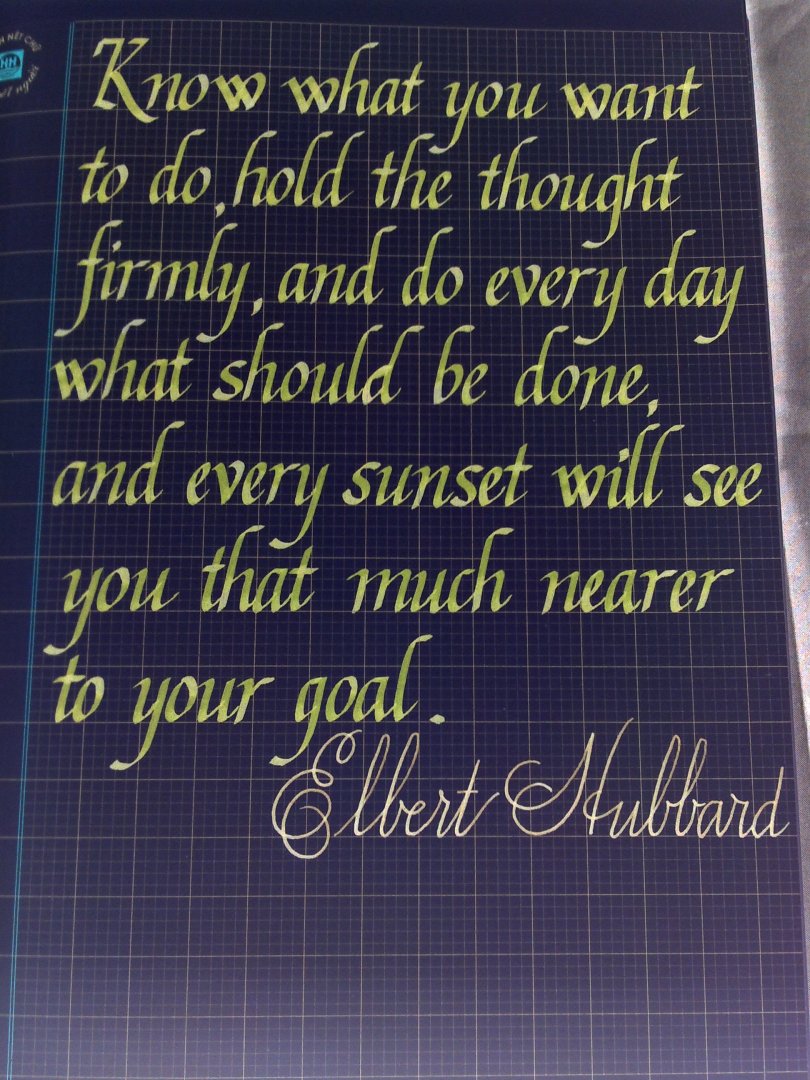 NÉT CHỮ
HN
NẾT NGƯỜI
Know what you want
to do, hold the thought
firmly, and do every day
what should be done,
and every sunset will see
you that much nearer
to your goal.
Elbert Hubbard